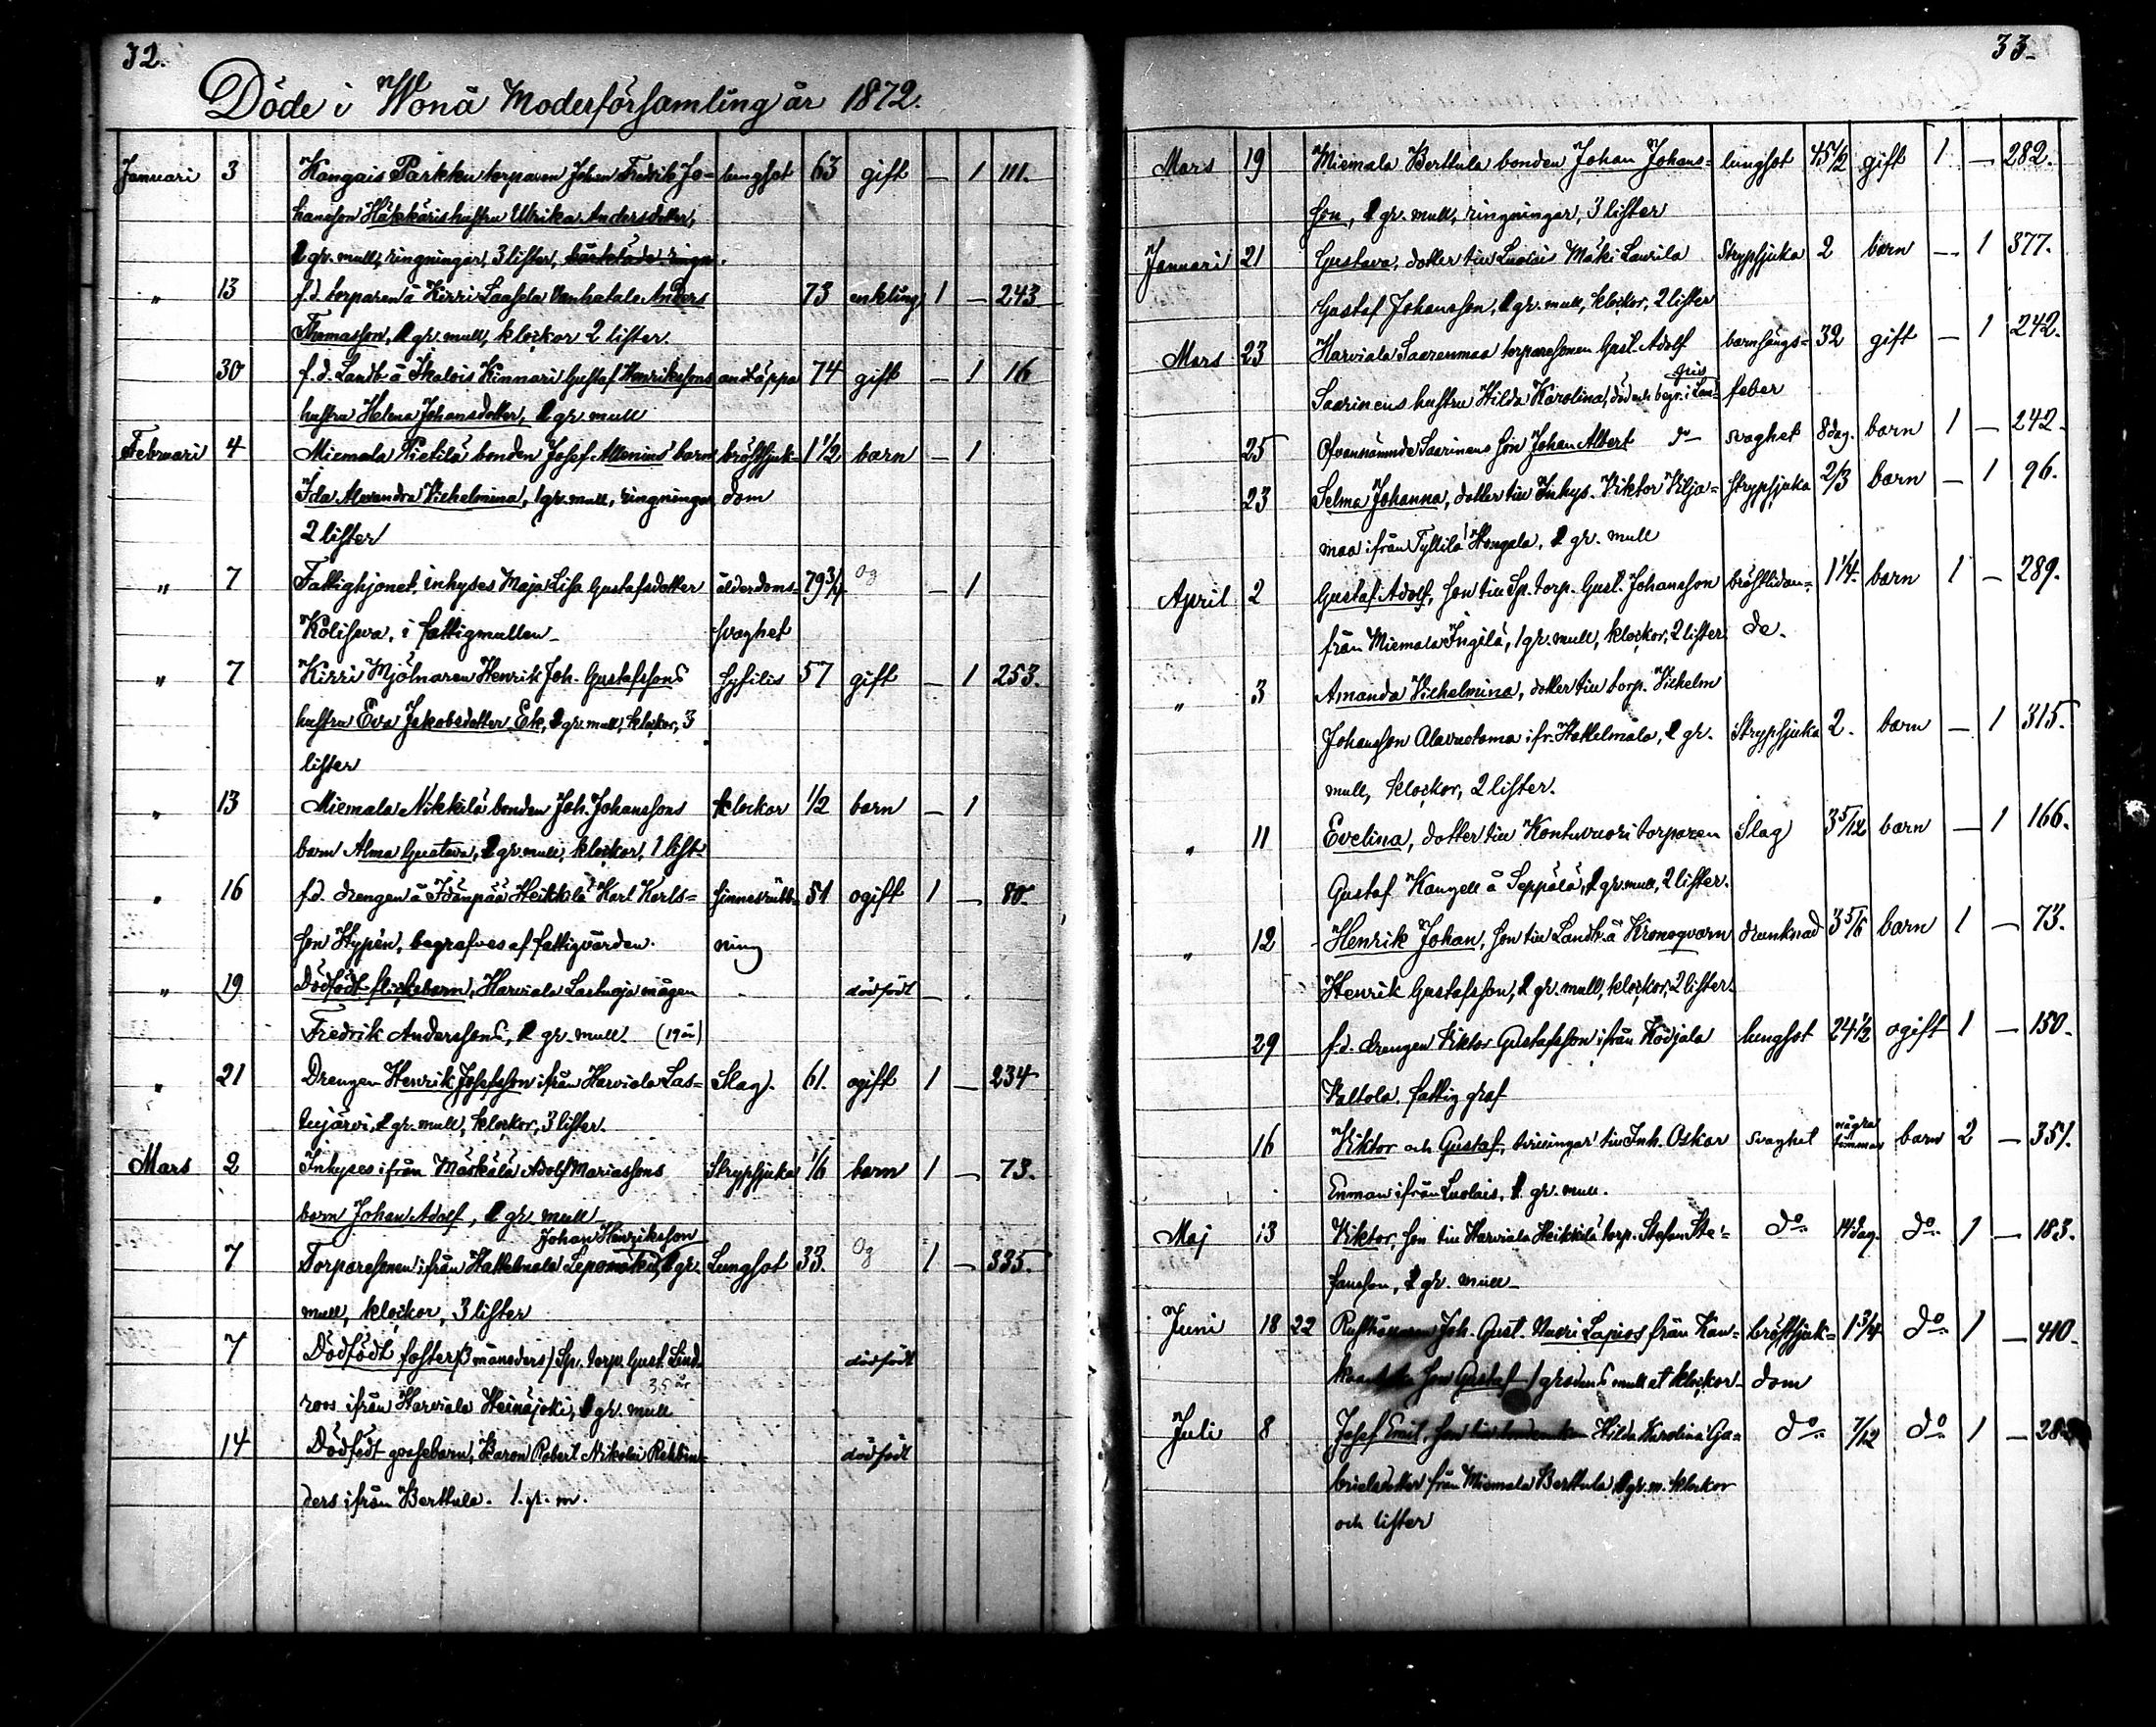 32.
Döde i Wonå Moderförsamling år 1872.
Januari 3 Kangais Parkku torparen Johan Fredrik Jo= lungsot 63 gift — 1 111.
hansson Häkkäris hustru Ulrika Andersdotter,
1 gr. mull, ringningar, 3 lister,
" 13 f.d. torparen å Kirri Laasela Vanhatalo Anders 73 enkling 1 — 243
Thomasson, 1 gr. mull, klockor 2 lister.
30 f.d. Landb. å Ihalois Kinnari Gustaf Henrikssons andtäppa 74 gift — 1 16
hustru Helena Johansdotter, 1 gr. mull
Februari 4 Miemala Pietilä bonden Josef Allenius barn bröstsjuk= 1 1/2 barn — 1
Ida Alexandra Vilhelmina, 1 gr. mull, ringningar dom
2 lister
" 7 Fattighjonet, inhyses Maja Lisa Gustafsdotter ålderdoms= 79 3/4 og — 1
Koliseva, i fattigmullen svaghet
" 7 Kirri Mjölnaren Henrik Joh. Gustafssons syfilis 57 gift — 1 253.
hustru Eva Jakobsdotter Ek, 1 gr. mull, klockor, 3
lister
" 13 Miemala Nikkilä bonden Joh. Johanssons klockor 1/2 barn — 1
barn Alma Gustava, 1 gr mull, klockor, 1 list
" 16 f.d. drengen å Idänpää Heikkilä Karl Karls= sinnesrubb= 51 ogift 1 — 80.
son Hypén, begrafves af fattigvården. ning
" 19 Dödfödt flickebarn, Harviala Lastuoja mågen dödfödt — .
Fredrik Anderssons, 1 gr. mull. (19 år)
" 21 Drengen Henrik Josefsson ifrån Harviala Las= Slag. 61. ogift 1 — 234
tujärvi, 1 gr. mull, klockor, 3 lister.
Mars 2 Inhyses ifrån Mäskälä Adolf Mariassons Strypsjuka 1/6 barn 1 — 73.
barn Johan Adolf, 1 gr. mull
Johan Henriksson
7 Torparesonen ifrån Hattelmala Leponokka, 1 gr. Lungsot 33. Og 1 — 335.
mull, klockor, 3 lister
7 Dödfödt foster (3 månaders) Sp. torp. Gust. Lind= dödfödt
35 år
roos ifrån Harviala Heinäjoki, 1 gr. mull
14 Dödfödt gossebarn, Baron Robert Nikolai Rehbin= dödfödt
ders ifrån Berttula. 1. gr. m.
33.
Mars 19 Miemala Berttula bonden Johan Johans= lungsot 45 1/2 gift 1 — 282.
son, 1 gr. mull, ringningar, 3 lister
Januari 21 Gustava, dotter till Luolais Mäki Laurila Strypsjuka 2 barn — 1 377.
Gustaf Johansson, 1 gr. mull, klockor, 2 lister
Mars 23 Harviala Saarenmaa torparesonen Gust. Adolf barnsängs= 32 gift — 1 242.
Saarinens hustru Hilda Karolina, död och begr. i Lam= feber
25 Ofvannämnde Saarinens son Johan Albert do svaghet 8 dag. barn 1 — 242.
23 Selma Johanna, dotter till Inhys. Viktor Vilja= strypsjuka 2/3 barn — 1 96.
maa ifrån Tyllilä Hongala, 1 gr. mull
April 2 Gustaf Adolf, son till Sp. torp. Gust. Johansson bröstlidan= 1 1/4. barn 1 — 289.
från Miemala Ingilä, 1 gr. mull, klockor, 2 lister de.
" 3 Amanda Vilhelmina, dotter till torp. Vilhelm
Johansson Alavuotama ifr. Hattelmala, 1 gr. Strypsjuka 2. barn — 1 315.
mull, klockor, 2 lister.
" 11 Evelina, dotter till Kontuvuori torparen Slag 3 5/12 barn — 1 166.
Gustaf Kanzell å Seppälä, 1 gr. mull, 2 lister.
" 12 Henrik Johan, son till Landb. å Kronoqvarn drunknad 3 5/6 barn 1 — 73.
Henrik Gustafsson, 1 gr. mull, klockor, 2 lister.
29 f.d. drengen Viktor Gustafsson ifrån Ködjala lungsot 24 1/2 ogift 1 — 150.
Valtola. fattig graf
16 Viktor och Gustaf, tvillingar till Inh. Oskar svaghet några timmar barn 2 — 351.
Enman ifrån Luolais, 1 gr. mull.
Maj 13 Viktor, son till Harviala Heikkilä torp. Stefan Ste= do 14 dag. do 1 — 183.
fansson, 1 gr. mull
Juni 18 22 Rusthållaren Joh. Gust. Vuori Lapios från Kan= bröstsjuk= 1 3/4 do 1 — 410.
son Gustaf 1 gradens mull et klockor dom
Juli 8 Josef Emil, son till Hilda Karolina Ga= do 7/12 do 1 —
brielsdotter från Miemala Berttula 1 gr. m. klockor
och lister